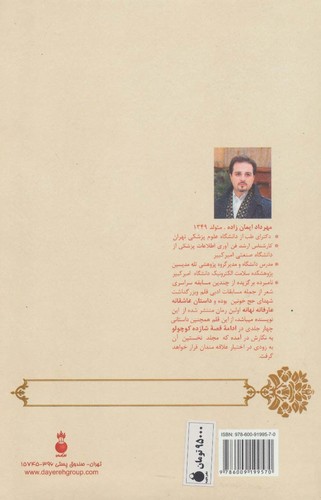 مهرداد ایمان زاده ، متولد ۱۳۴۹
دکترای طب از دانشگاه علوم پزشکی تهران
کارشناس ارشد فن آوری اطلاعات پزشکی از
دانشگاه صنعتی امیرکبیر
مدرس دانشگاه و مدیرگروه پژوهشی تله مدیسین
پژوهشکده سلامت الکترونیک دانشگاه امیرکبیر
نامبرده برگزیده از چندین مسابقه سراسری
شعر از جمله مسابقات ادبی قلم و بزرگداشت
شهدای حج خونین بوده و داستان عاشقانه
عارفانه نهانه اولین رمان منتشر شده از این
نویسنده میباشد. از این قلم همچنین داستانی
چهار جلدی در ادامهٔ قصهٔ شازده کوچولو
به نگارش در آمده که مجلد نخستین آن
به زودی در اختیار علاقه مندان قرار خواهد
گرفت.
ISBN: 978-600-91995-7-0
9 786009 199570
۹۵۰۰۰ تومان
تهران- صندوق پستی ۳۹۷-۱۵۷۴۵
www.dayerehgroup.com